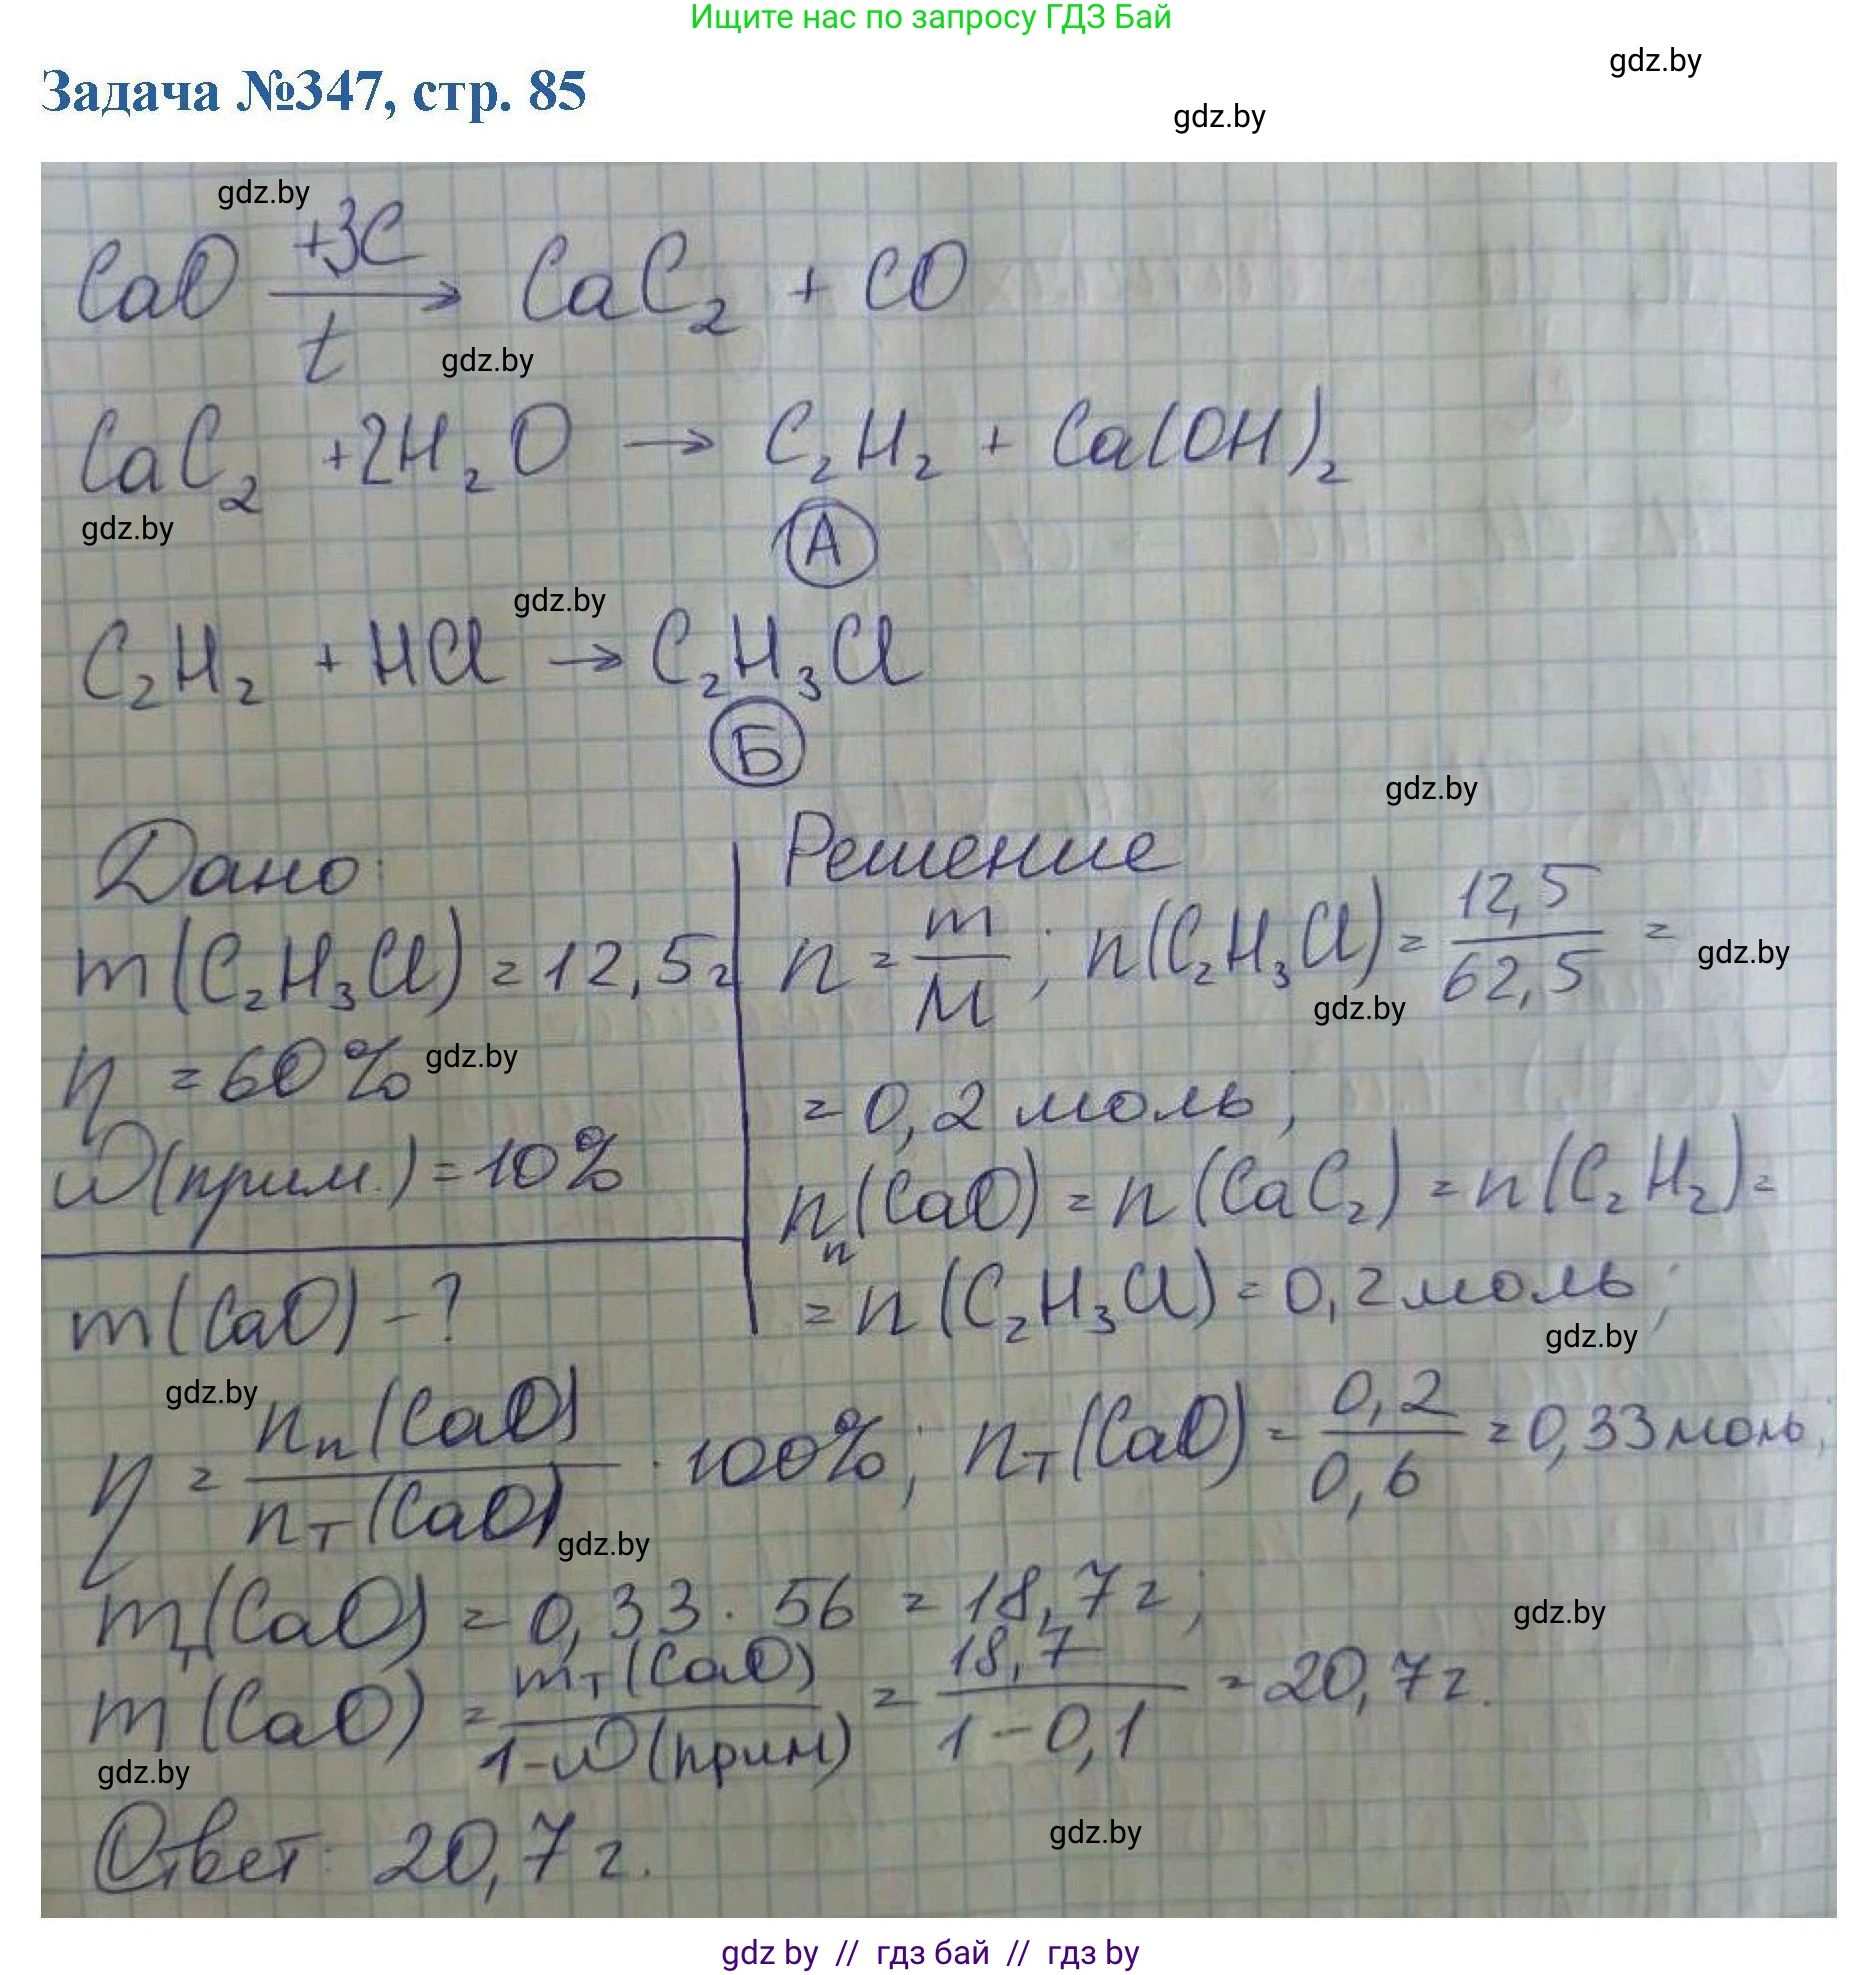 Ищите нас по запросу ГДЗ Бай
gdz.by
Задача №347, стр. 85
gdz.by
gdz.by
CaO +3C/t → CaC₂ + CO
gdz.by
CaC₂ +2H₂O → C₂H₂ + Ca(OH)₂
gdz.by
А
gdz.by
C₂H₂ + HCl → C₂H₃Cl
Б
gdz.by
Дано:
m(C₂H₃Cl) = 12,5г
η = 60%
gdz.by
ω(прим.) = 10%
m(CaO) - ?
Решение
n = m/M ; n(C₂H₃Cl) = 12,5/62,5 =
gdz.by
gdz.by
= 0,2 моль;
nₙ(CaO) = n(CaC₂) = n(C₂H₂) =
= n(C₂H₃Cl) = 0,2 моль;
gdz.by
gdz.by
η = nₙ(CaO)/nт(CaO) · 100%; nт(CaO) = 0,2/0,6 = 0,33 моль;
gdz.by
mт(CaO) = 0,33 · 56 = 18,7 г;
gdz.by
m(CaO) = mт(CaO)/1-ω(прим) = 18,7/1-0,1 = 20,7 г.
gdz.by
gdz.by
Ответ: 20,7 г.
gdz by // гдз бай // гдз by